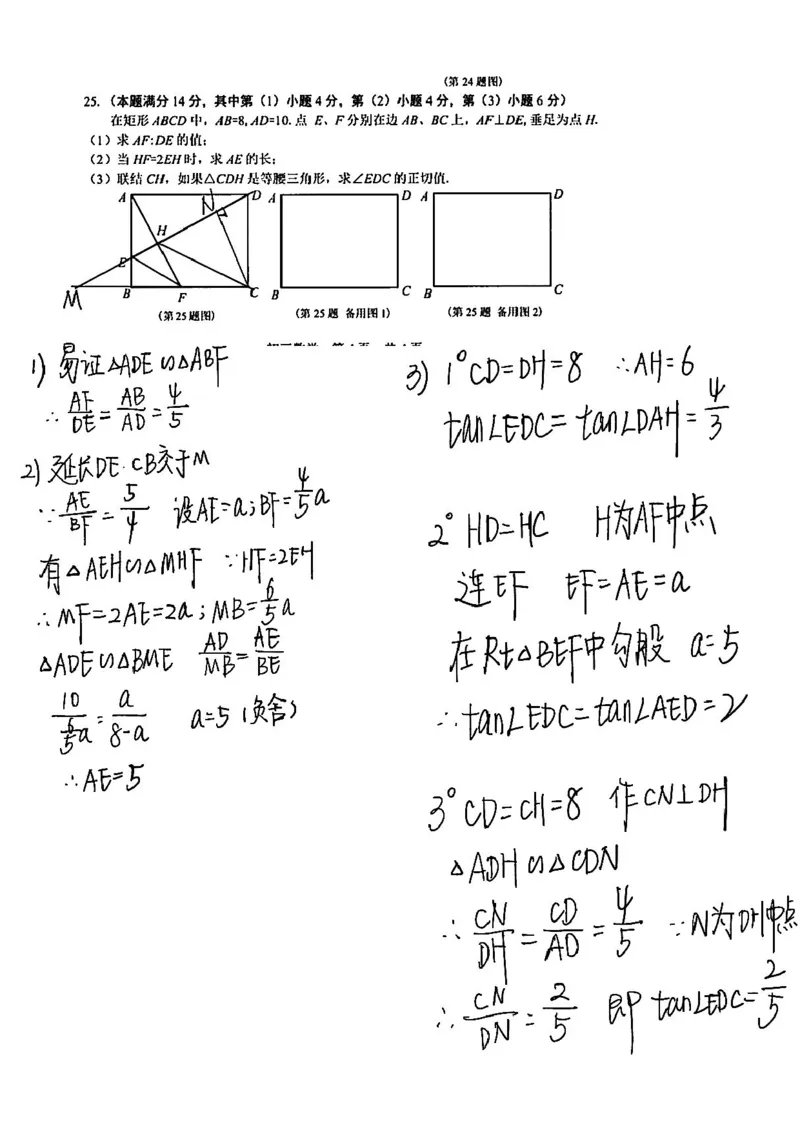 (第24题图)
25. (本题满分14分，其中第(1)小题4分，第(2)小题4分，第(3)小题6分)
在矩形ABCD中，AB=8, AD=10. 点 E、F分别在边 AB、BC上，AF⊥DE, 垂足为点H.
(1) 求AF:DE的值;
(2) 当HF=2EH时，求AE的长;
(3) 联结CH，如果△CDH是等腰三角形，求∠EDC的正切值.
A N D A D A D
H
E
M B F C B C B C
(第25题图) (第25题 备用图1) (第25题 备用图2)
1) 易证△ADE∽△ABF
∴ AF/DE = AB/AD = 4/5
2) 延长DE·CB交于M
∵ AE/BF = 5/4 设AE=a; BF=4/5a
有△AEH∽△MHF ∵HF=2EH
∴MF=2AE=2a; MB=6/5a
△ADE∽△BME AD/MB = AE/BE
10/(6/5a) = a/(8-a) a=5 (负舍)
∴AE=5
3) 1° CD=DH=8 ∴AH=6
tan∠EDC=tan∠DAH=4/3
2° HD=HC H为AF中点
连EF EF=AE=a
在Rt△BEF中勾股 a=5
∴tan∠EDC=tan∠AED=2
3° CD=CH=8 作CN⊥DH
△ADH∽△CDN
∴ CN/DH = CD/AD = 4/5 ∵N为DH中点
∴ CN/DN = 2/5 即 tan∠EDC=2/5